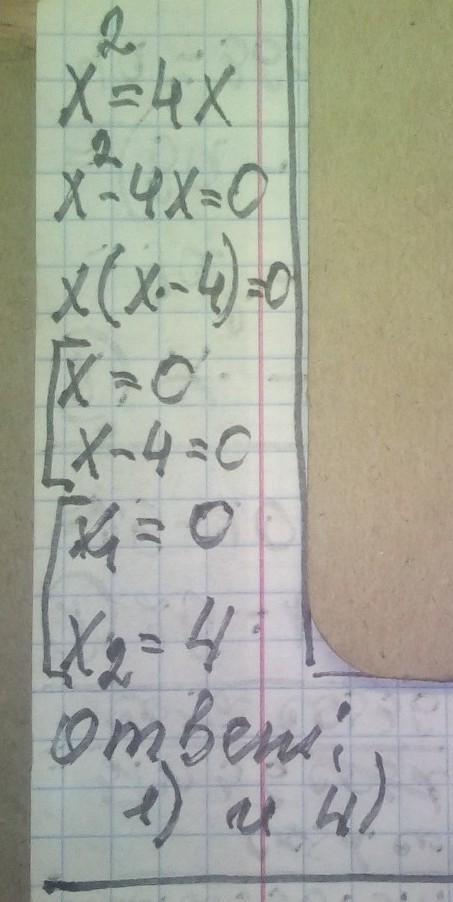 x²=4x
x²-4x=0
x(x-4)=0
[x=0
x-4=0
[x₁=0
x₂=4
ответ:
1) и 4)